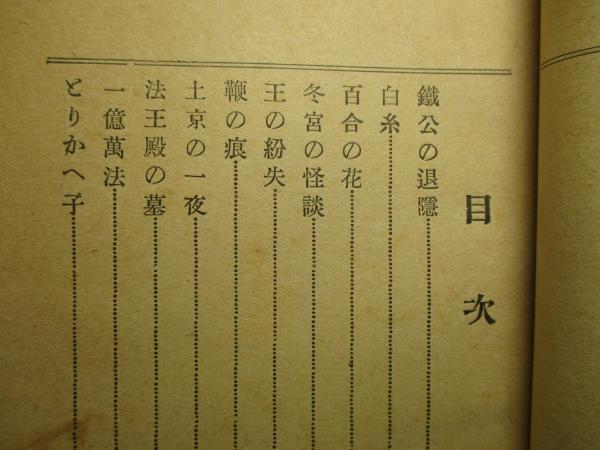 目次
鐵公の退隱
白糸
百合の花
冬宮の怪談
王の紛失
鞭の痕
土京の一夜
法王殿の墓
一億萬法
とりかへ子